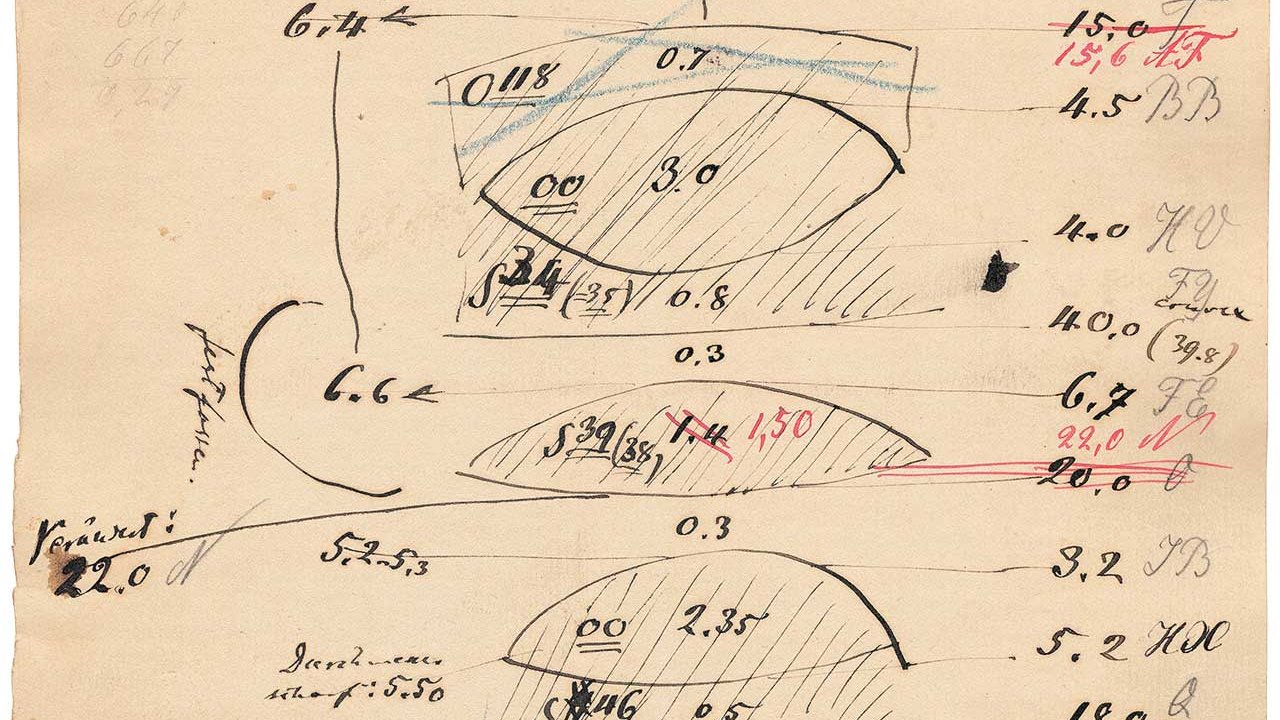 6.4
15.0
15,6 AF
0.7
O 118
4.5 BB
00 3.0
4.0 HV
S 34 (35) 0.8
40.0
(39.8)
0.3
6.6
6.7 FE
22,0 N
S 39 (38) 1.4 1,50
20.0 O
0.3
22.0 N
5.2-5,3
3.2 JB
00 2.35
5.2 HX
scharf: 5.50
46 0.5
Q